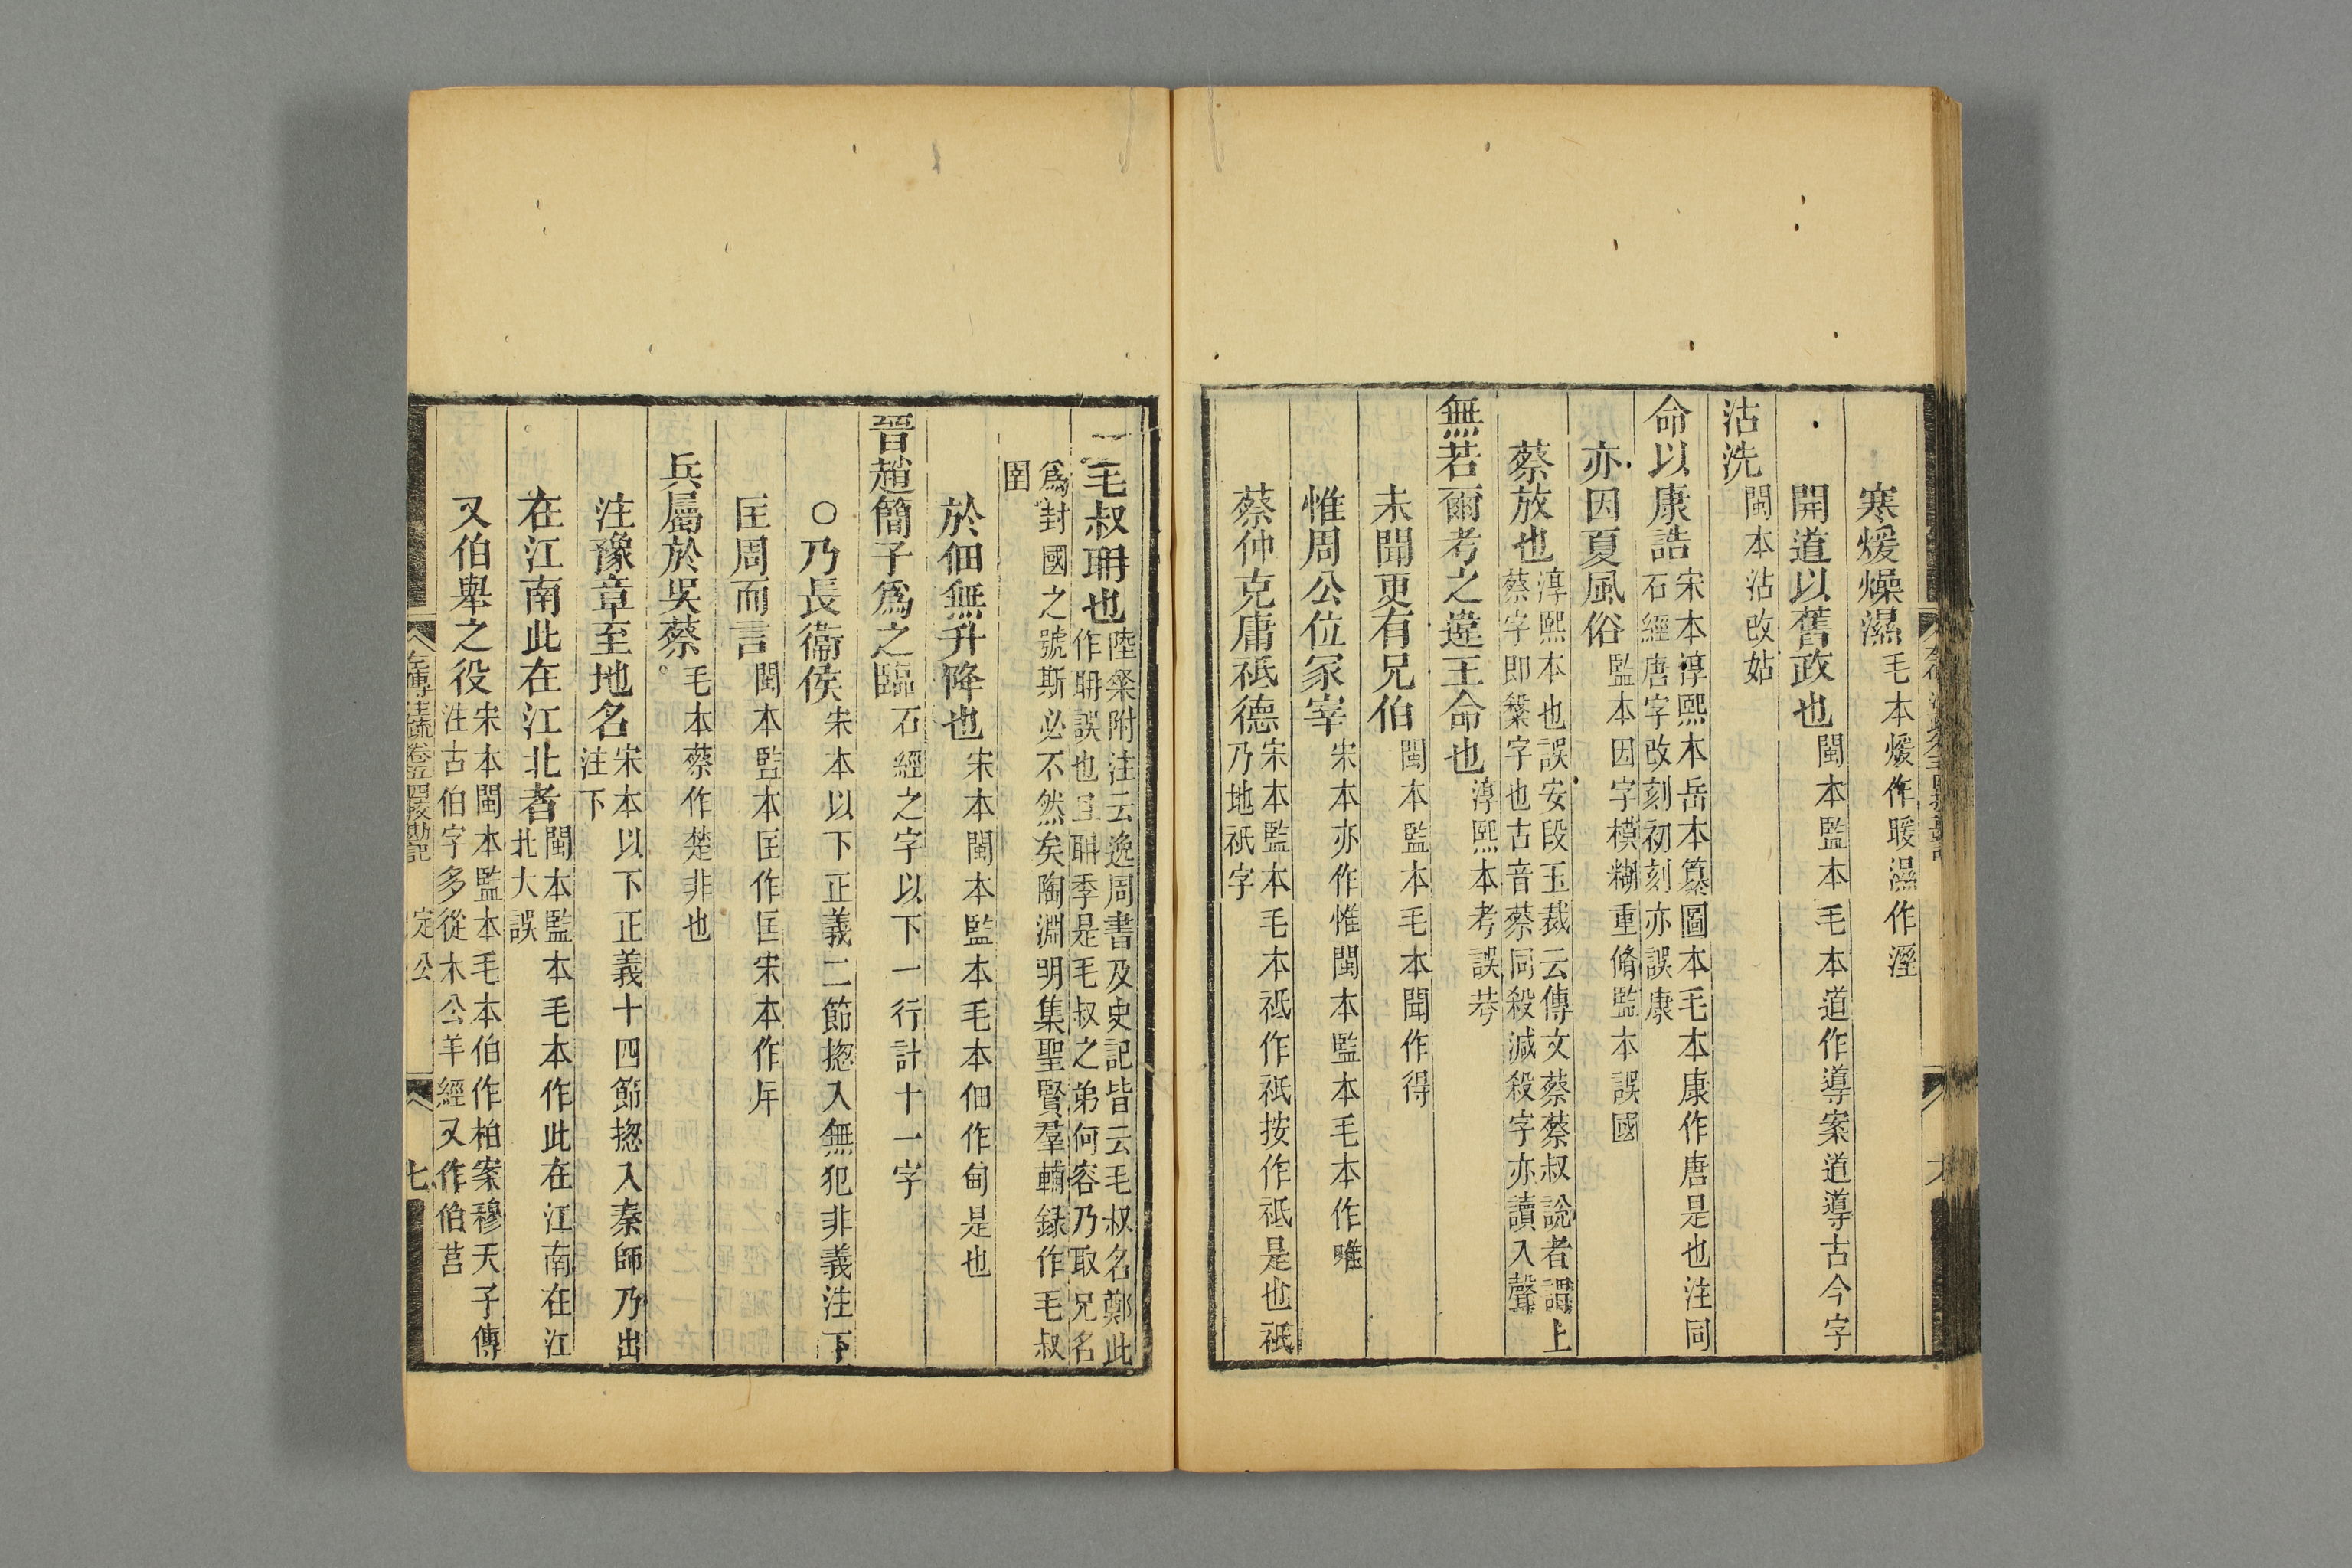 寒煖燥濕毛本煖作暖濕作溼
開道以舊政也閩本監本毛本道作導案道導古今字
沽洗閩本沽改姑
命以康誥宋本淳熙本岳本纂圖本毛本康作唐是也注同石經唐字改刻初刻亦誤康
亦因夏風俗監本因字模糊重脩監本誤國
蔡放也淳熙本也誤安段玉裁云傳文蔡蔡叔說者謂上蔡字即𥻦字也古音蔡同殺減殺字亦讀入聲
無若爾考之違王命也淳熙本考誤芎
未聞更有兄伯閩本監本毛本聞作得
惟周公位冢宰宋本亦作惟閩本監本毛本作唯
蔡仲克庸祗德宋本監本毛本祗作祇按作祗是也祇乃地祇字
毛叔耼也陸粲附注云逸周書及史記皆云毛叔名鄭此作耼誤也且耼季是毛叔之弟何容乃取兄名
爲封國之號斯必不然矣陶淵明集聖賢羣輔録作毛叔圉
於佃無升降也宋本閩本監本毛本佃作甸是也
晉趙簡子爲之臨石經之字以下一行計十一字
○乃長衞侯宋本以下正義二節揔入無犯非義注下
匡周而言閩本監本匡作匡宋本作㡯
兵屬於吳蔡。毛本蔡作楚非也
注豫章至地名宋本以下正義十四節揔入秦師乃出注下
在江南此在江北者閩本監本毛本作此在江南在江北大誤
又伯舉之役宋本閩本監本毛本伯作柏案穆天子傳注古伯字多從木公羊經又作伯莒
左傳注疏卷五十四校勘記 定公 七